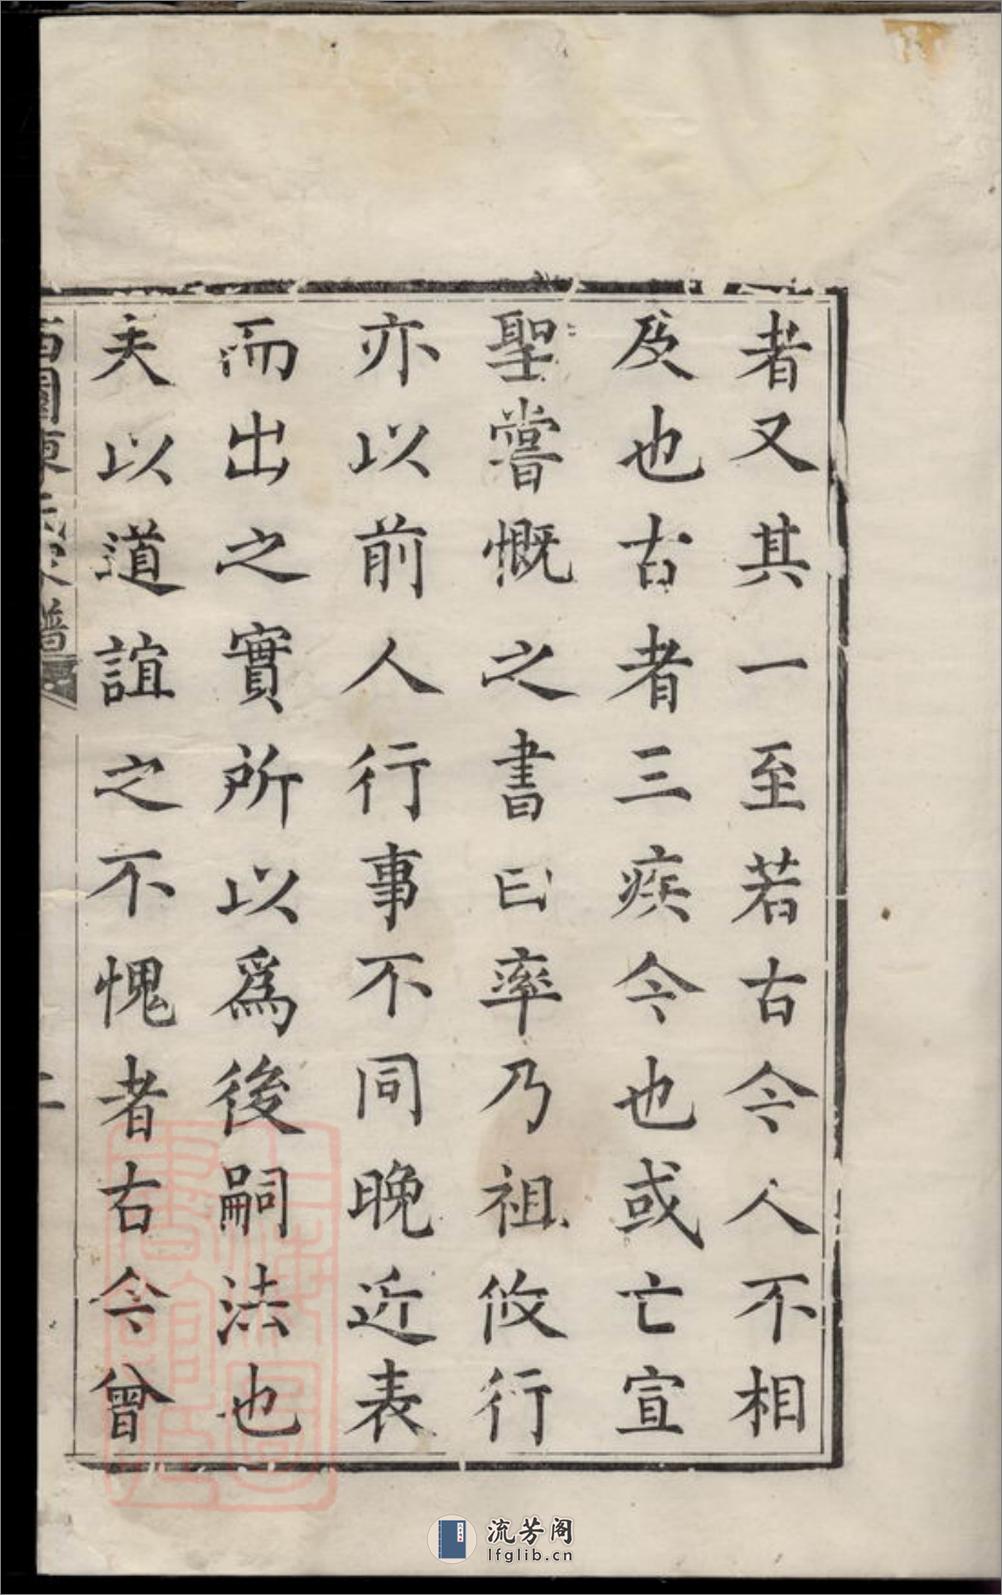 者又其一至若古今人不相
及也古者三疾今也或亡宣
聖嘗慨之書曰率乃祖攸行
亦以前人行事不同晚近表
而出之實所以爲後嗣法也
夫以道誼之不愧者古今曾
譜
二
流芳阁
lfglib.cn